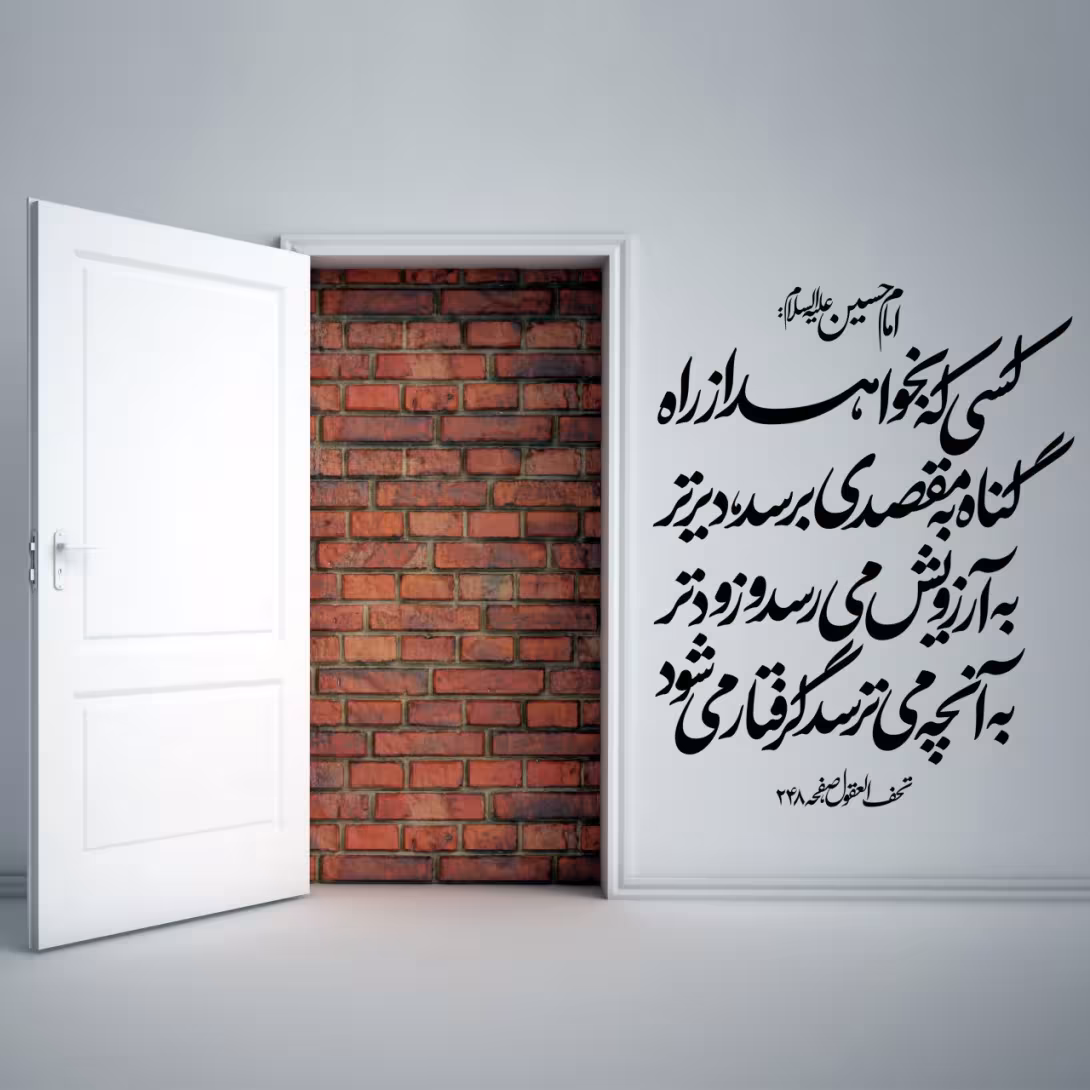 امام حسین علیه‌السلام:
کسی که بخواهد از راه
گناه به مقصدی برسد، دیرتر
به آرزویش می‌رسد و زودتر
به آنچه می‌ترسد گرفتار می‌شود
تحف العقول، صفحه ۲۴۸